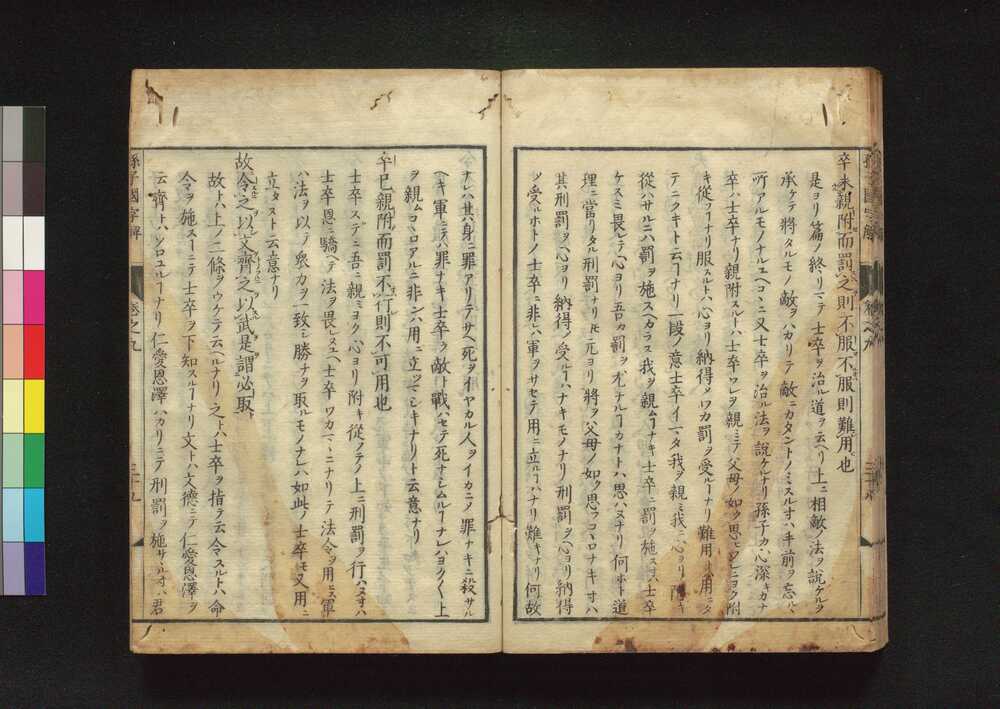 卒未親附而罰之則不服不服則難用也
是ヨリ篇ノ終リマテ士卒ヲ治ル道ヲ云ヘリ上ニ相敵ノ法ヲ説ケルヲ
承ケテ將タルモノ敵ヲハカリテ敵ニカタントノミスル寸ハ手前ヲ忘ルヽ
所アルモノナルユヘコヽニ又士卒ヲ治ル法ヲ説ケルナリ孫子カ心深ヒカナ
卒ハ士卒ナリ親附スルトハ士卒ワレヲ親ミテ父母ノ如ク思モワレニヨク附
キ從フヿナリ服スルトハ心ヨリ納得メワカ罰ヲ受ルヿナリ難用トハ用ニタ
テニクキト云ヿナリ一段ノ意士卒イマタ我ヲ親ミ我ニ心ヨリ附キ
從ハサルニハ罰ヲ施スヘカラス我ヲ親ムヿナキ士卒ニ罰ヲ施ス寸ハ士卒
ケスミ畏レテ心ヨリ吾カ罰ヲ尤ナルヿカナトハ思ハヌナリ何ホト道
理ニ當リタル刑罰ナリ𪜈元ヨリ將ヲ父母ノ如ク思フコヽロナキ寸ハ
其刑罰ヲ心ヨリ納得メ受ルヿハナキモノナリ刑罰ヲ心ヨリ納得
メ受ルホトノ士卒ニ非レハ軍ヲサセテ用ニ立ルヿハナリ難キナリ何故
ナレハ其身ニ罪アリテサヘ死ヲイヤカル人ヲイカニメ罪ナキニ殺サル
ヘキ軍ニテハ罪ナキ士卒ヲ敵ト戰ハセテ死ナシムルヿナレハヨク〱上
ヲ親ムコヽロアルニ非ンハ用ニ立ツマシキナリト云意ナリ
卒已親附而罰不行則不可用也
士卒スデニ吾ニ親ミヨク心ヨリ附キ從ノテノ上ニ刑罰ヲ行ハヌ寸ハ
士卒恩ニ驕ヘテ法ヲ畏レヌユヘ士卒ワカマヽニナリテ法令ヲ用ヒス軍
ハ法ヲ以テ衆力ヲ一致メ勝ナヲ取ルモノナレハ如此ノ士卒モ又用ニ
立タスト云意ナリ
故令之以文齊之以武是謂必取
故トハ上ノ二條ヲウケテ云ヘルナリ之トハ士卒ヲ指テ云令スルトハ命
令ヲ施スヿニテ士卒ヲ下知スルヿナリ文トハ文德ニテ仁愛恩澤ヲ
云齊トハソロユルヿナリ仁愛恩澤ハカリニテ刑罰ヲ施サヽル寸ハ君
孫子國字解
卷之九
三十九